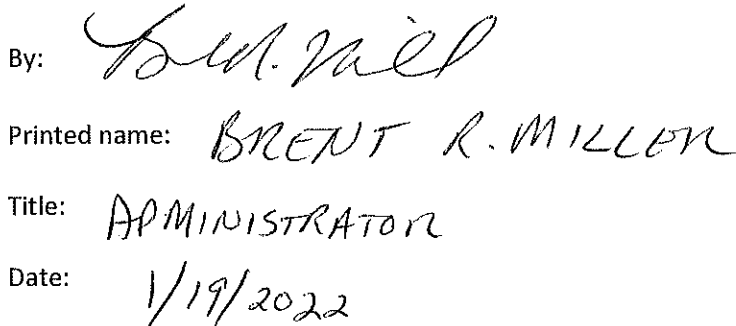 By:
Printed name: BRENT R. MILLER
Title: ADMINISTRATOR
Date: 1/19/2022